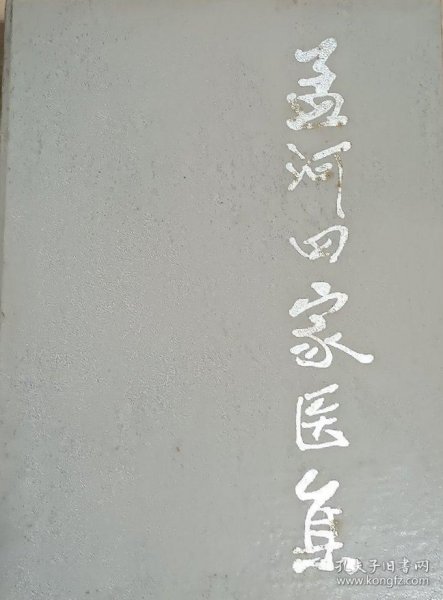 孟河四家医集
孔夫子旧书网
www.kongfz.com